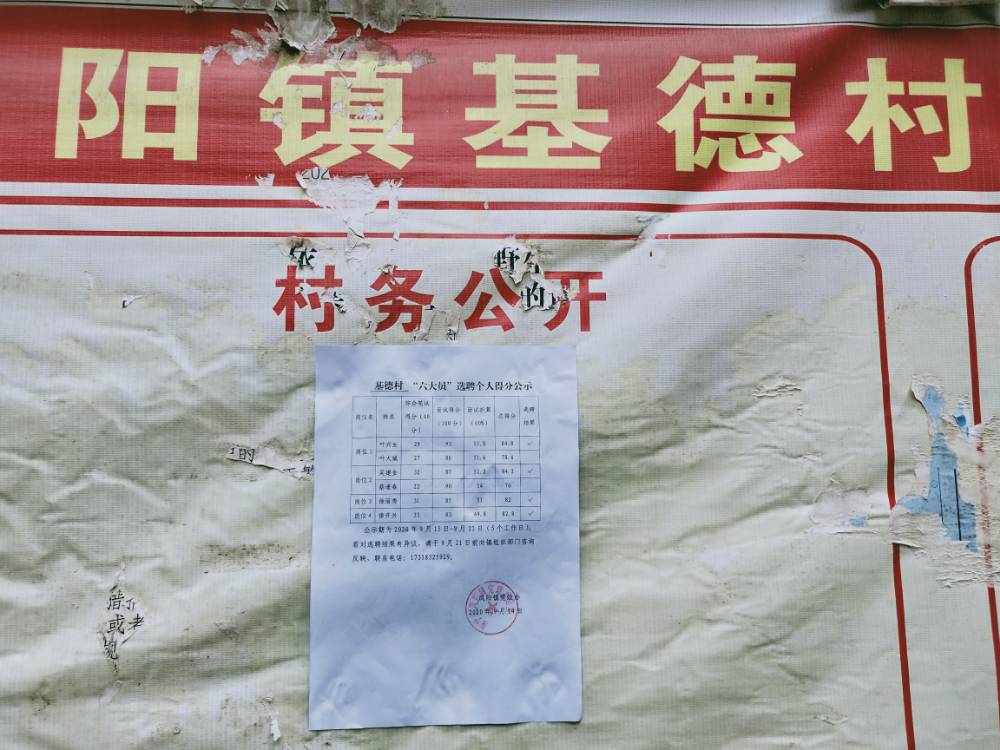 阳镇基德村
202
村务公开
的
基德村 “六大员”选聘个人得分公示
岗位名 姓名 综合笔试得分(40分) 面试得分(100分) 面试折算(60%) 总得分 选聘结果
岗位1 叶兴生 29 93 55.8 84.8 ✓
叶大斌 27 86 51.6 78.6
岗位2 吴建金 32 87 52.2 84.2 ✓
蔡建春 22 90 54 76
岗位3 31 85 51 82 ✓
岗位4 徐开兴 33 83 49.8 82.8 ✓
公示期为2020年9月15日-9月21日(5个工作日),
若对选聘结果有异议,请于9月21日前向镇组织部门咨询
反映,联系电话:
2020年9月14日
的
借
或